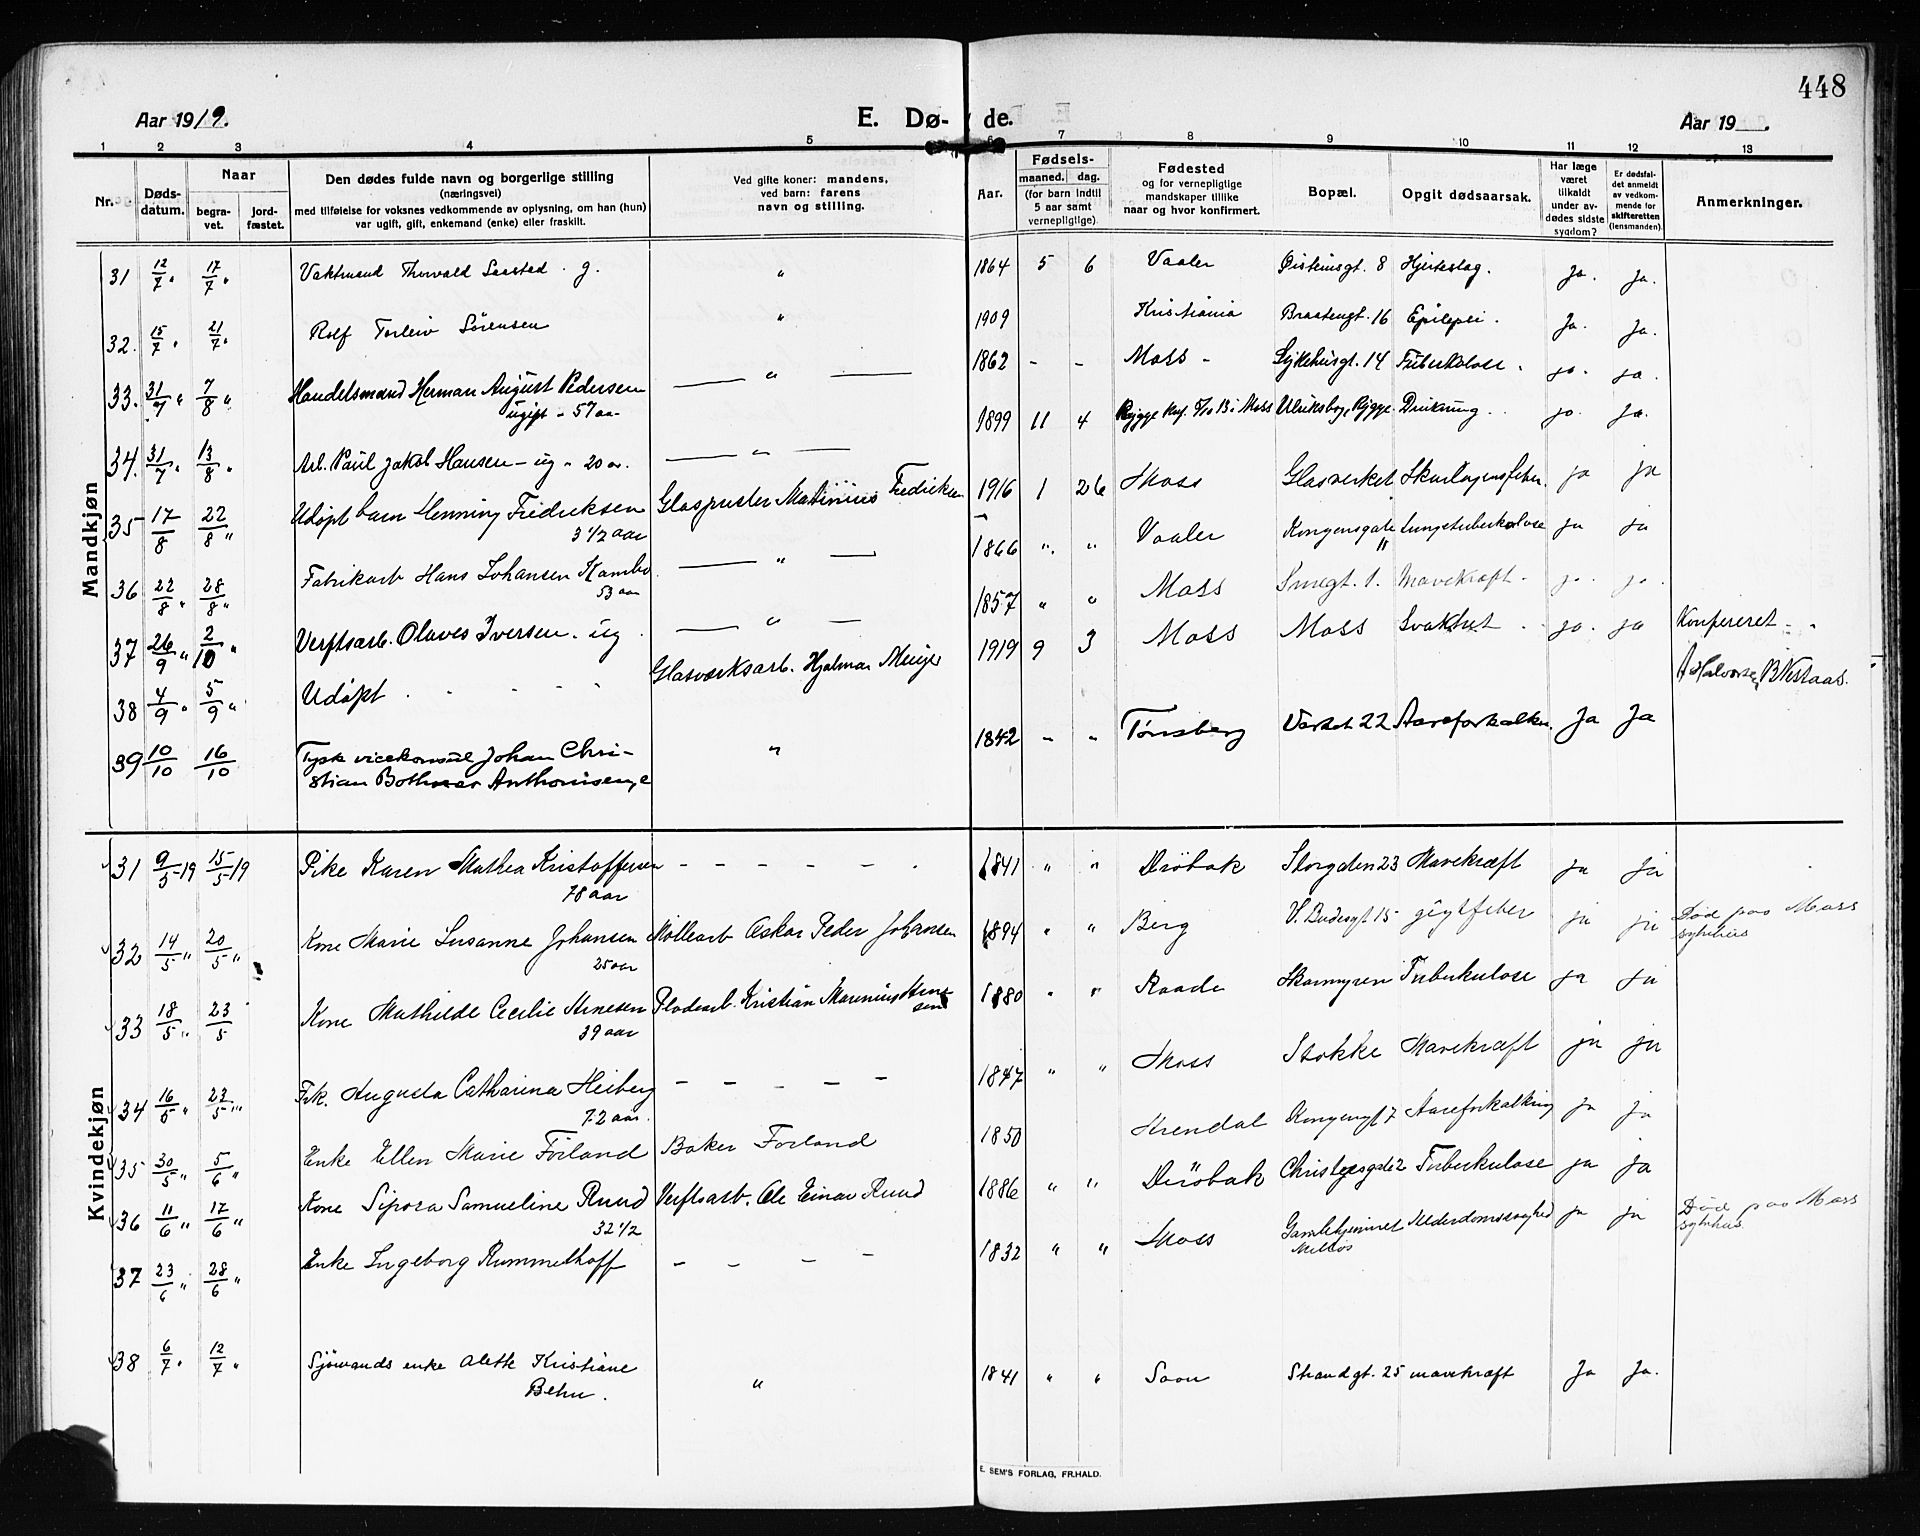 448
Aar 1919.
E. Dø-
de.
Aar 19 .
1 2 3 4 5 6 7 8 9 10 11 12 13
Nr.
Døds-
datum.
Naar
begra-
vet.
jord-
fæstet.
Den dødes fulde navn og borgerlige stilling
(næringsvei)
med tilføielse for voksnes vedkommende av oplysning, om han (hun)
var ugift, gift, enkemand (enke) eller fraskilt.
Ved gifte koner: mandens,
ved barn: farens
navn og stilling.
Aar.
Fødsels-
maaned. dag.
(for barn indtil
5 aar samt
vernepligtige)
Fødested
og for vernepligtige
mandskaper tillike
naar og hvor konfirmert.
Bopæl.
Opgit dødsaarsak.
Har læge
været
tilkaldt
under av-
dødes sidste
sygdom?
Er dødsfal-
det anmeldt
av vedkom-
mende for
skifteretten
(lensmanden).
Anmerkninger.
Mandkjøn
31 12/7 " 17/7 " Vaktmand Thorvald . g. " 1864 5 6 Vaaler 8 Hjerteslag. Ja. Ja.
32. 15/7 " 21/7 " Rolf Torleiv Sørensen " 1909 Kristiania Braatengt. 16 Epilepsi. Ja. Ja.
33. 31/7 " 7/8 " Handelsmand Herman August Pedersen — " — 1862 - - Moss - Sykehusgt. 14 Tuberkulose. ja. ja.
ugift - 57 aar
34. 31/7 " 13/8 " Arb. Paul Jakob Hansen - ug - 20 a. — " — 1899 11 4 Rygge i Moss Rygge. Drukning. ja. Ja.
35 17/8 22/8 " Udøpt barn Henning Fredriksen Glaspuster Fredriksen 1916 1 26 Moss Glasverket Skarlagensfeber ja ja
3 1/2 aar
36 22/8 " 28/8 " Fabrikarb Hans Johansen Kambo. — " — 1866 " " Vaaler Kongensgate Lungetuberkulose ja ja
53 aar
37 26/9 " 2/10 " Verftsarb. Olaves Iversen. ug. — " — 1857 " " Moss 1. Mavekræft. ja. ja.
38 4/9 " 5/9 " Udøpt . . . . Glasværksarb. Hjalmar 1919 9 3 Moss Moss Svakhet ja. ja Konfereret
39 10/10 16/10 Tysk vicekonsul Johan Chri- " 1842 - " Tønsberg 22 Aareforkalkn. Ja Ja
stian Anthonisen, e
Kvindekjøn
31 9/5-19 15/5-19 Pike Karen Mathea Kristoffersen - - - - - . 1841 " " Drøbak Storgden 23 Mavekræft ja ja
78 aar
32 14/5 " 20/5 " Kone Marie Susanne Johansen Møllearb Oskar Peder Johansen 1894 " " Berg 15 gigtfeber ja ja Død paa Moss
25 aar sykehus
33 18/5 " 23/5 Kone Mathilde Cecilie Arnesen Kristian Marenius Arne- 1880 " " Raade Skarmyren Tuberkulose ja ja
39 aar sen
34 16/5 " 23/5 " Frk. Augusta Catharina Heiberg - - - - 1847 " " Moss Stokke Mavekræft ja ja
72 aar.
35 30/5 " 5/6 " Enke Ellen Marie Førland Baker Førland 1850 Kongensgt 7 Aareforkalkning ja ja
36 11/6 " 17/6 " Kone Sipora Samueline Ruud Verftsarb. Ole Einar Ruud 1886 " " Drøbak 2 Tuberkulose ja ja
32 1/2
37 23/6 " 28/6 " Enke Ingeborg Rummelhoff - - - - 1832 " " Moss Gamlehjemmet Alderdomssvaghed ja ja Død paa Moss
Melløs sykehus
38 6/7 " 12/7 " Sjømands enke Alette Kristiane " 1841 " " Soon Strandgt. 25 mavekræft Ja Ja.
Behn.
E. SEM'S FORLAG, FR.HALD.